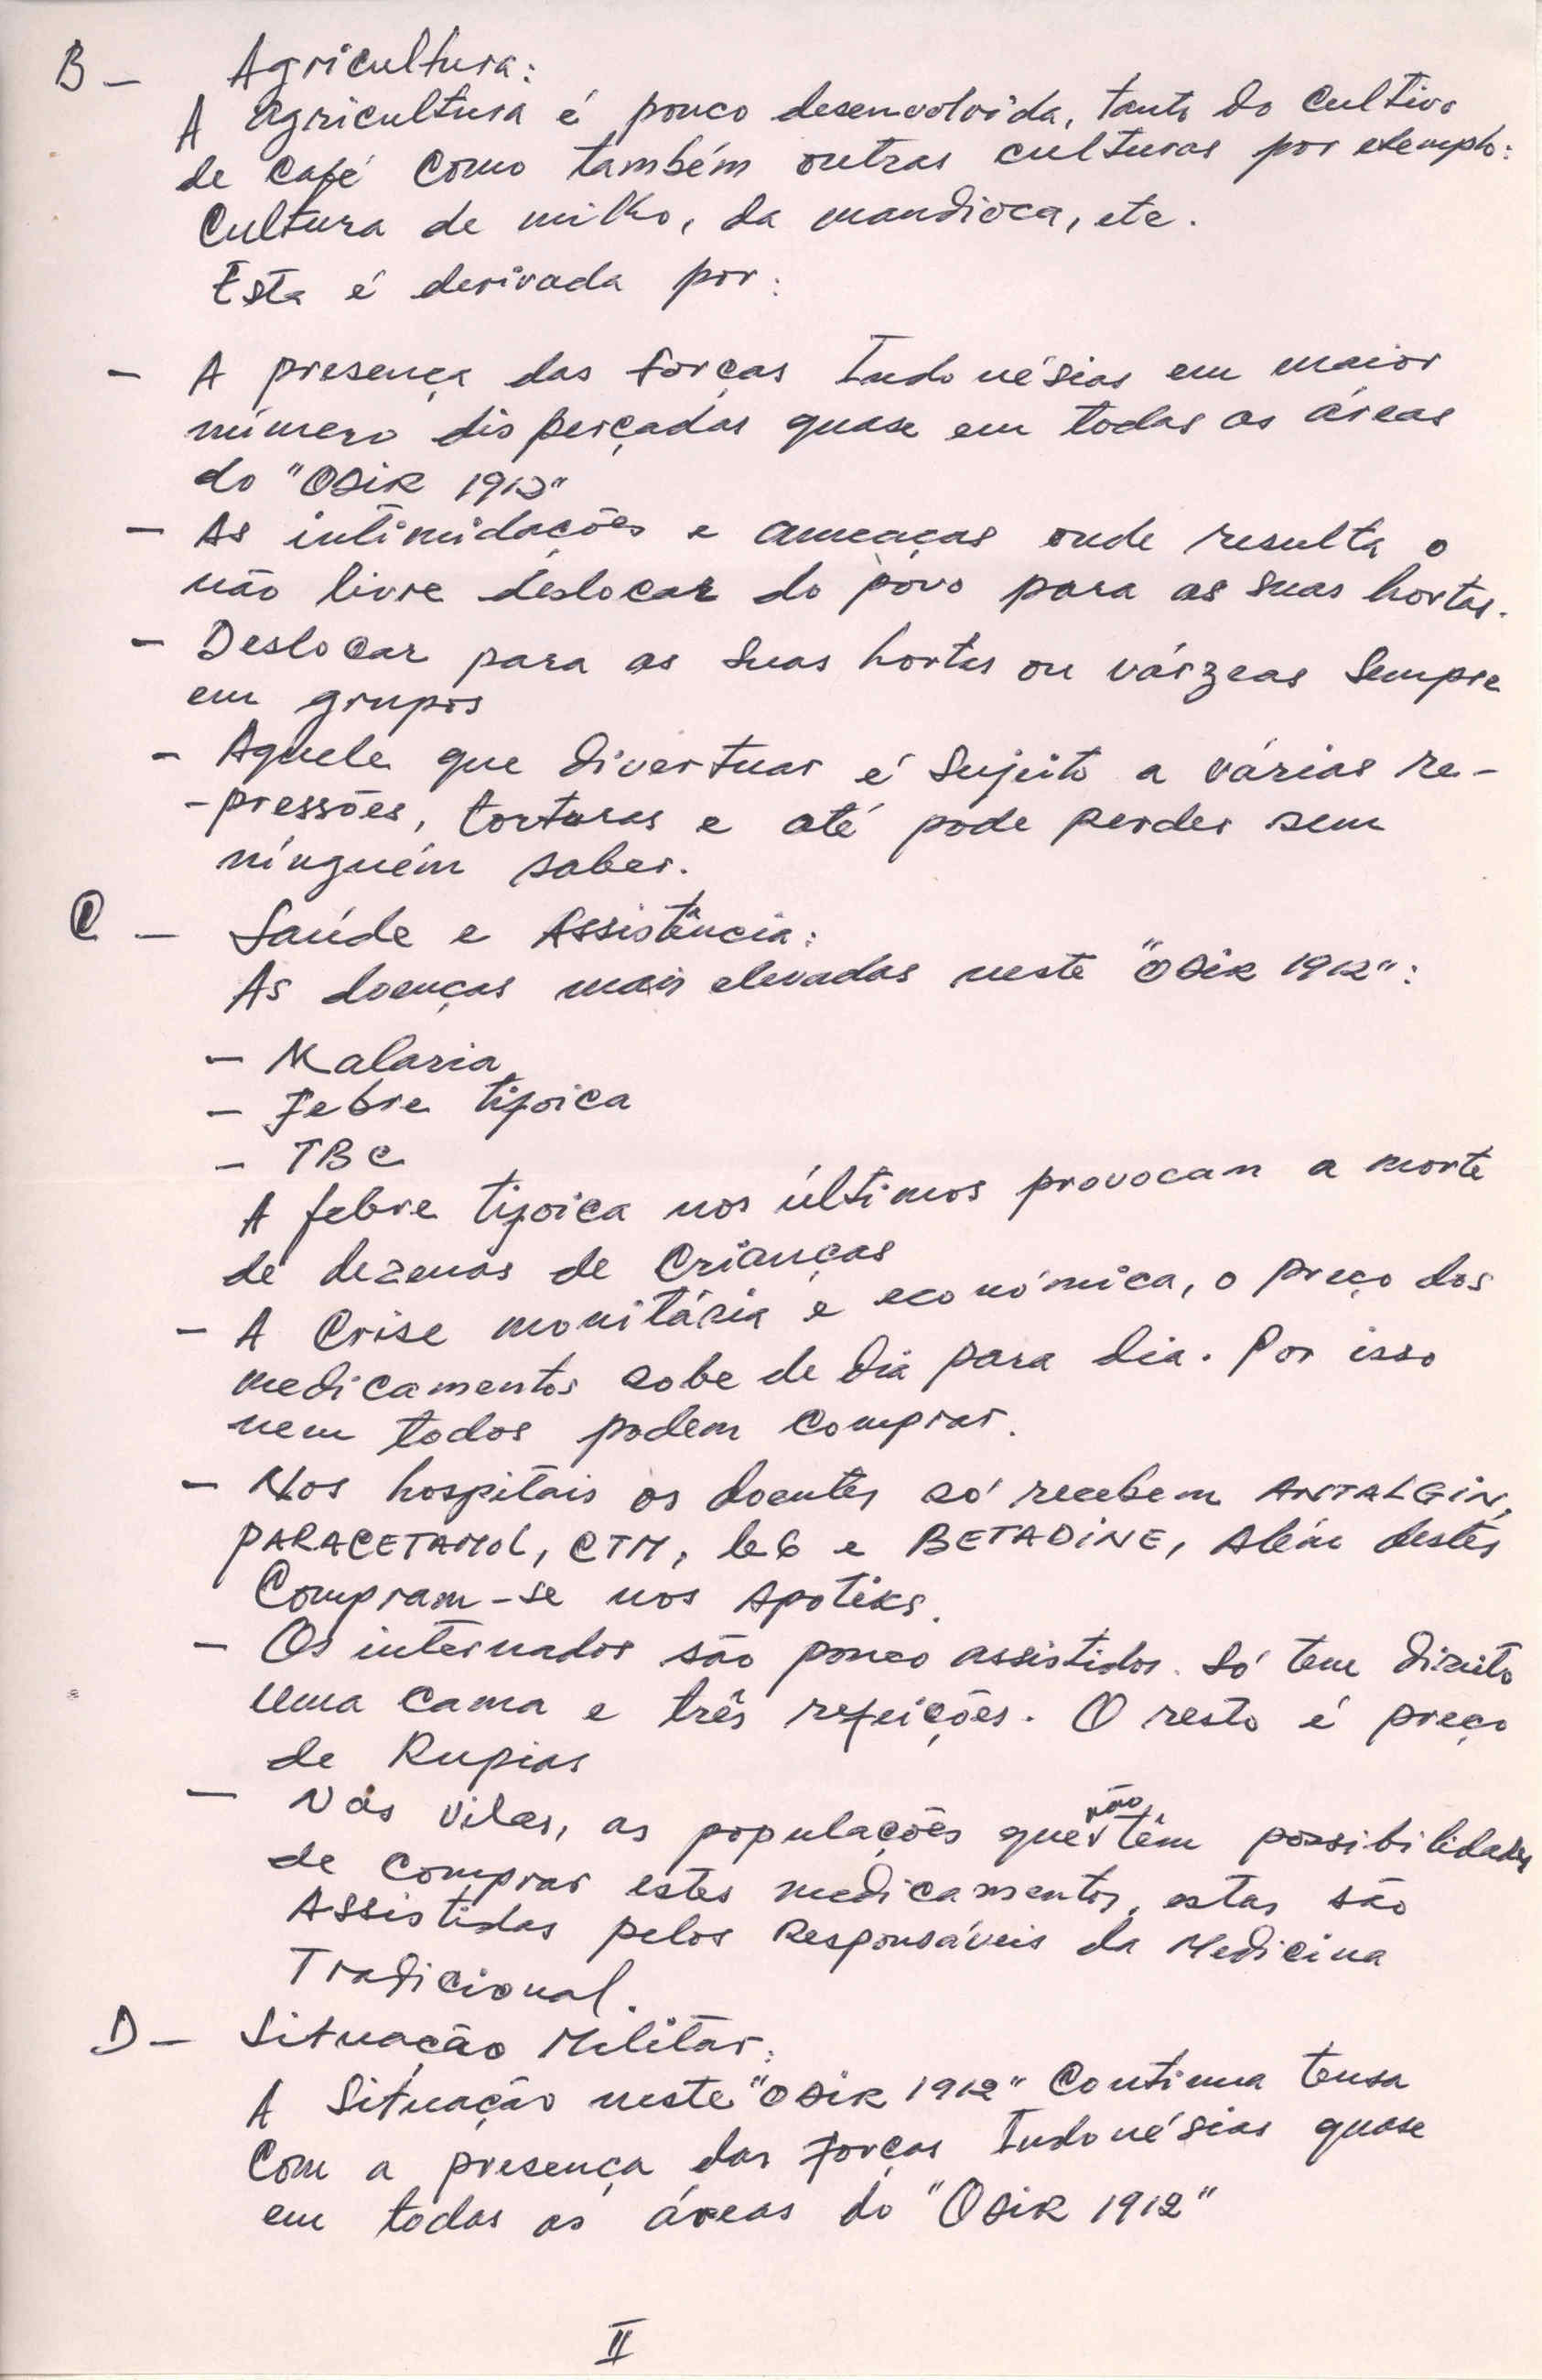 B – Agricultura:
A agricultura é pouco desenvolvida, tanto do cultivo
de café como também outras culturas por exemplo:
Cultura de milho, da mandioca, etc.
Esta é derivada por:
– A presença das forças Indonésias em maior
número disperçadas quase em todas as áreas
do "OSIK 1912"
– As intimidações e ameaças onde resulta o
não livre deslocar do povo para as suas hortas.
– Deslocar para as suas hortas ou várzeas sempre
em grupos
– Aquele que divertuar é sujeito a várias re-
-pressões, torturas e até pode perder sem
ninguém saber.
C – Saúde e Assistência:
As doenças mais elevadas neste "OSIK 1912":
– Malaria
– Febre tifoica
– TBC
A febre tifoica nos últimos provocam a morte
de dezenas de crianças
– A crise monitária e económica, o preço dos
medicamentos sobe de dia para dia. Por isso
nem todos podem comprar.
– Nos hospitais os doentes só recebem ANTALGIN,
PARACETAMOL, CTM, b6 e BETADINE, Além destes
Compram-se nos Apotiks.
– Os internados são pouco assistidos. Só tem direito
uma cama e três refeições. O resto é preço
de Rupias
– Nas vilas, as populações que não têm possibilidades
de comprar estes medicamentos, estas são
Assistidas pelos Responsáveis da Medicina
Tradicional.
D – Situação Militar:
A Situação neste "OSIK 1912" Continua tensa
Com a presença das Forças Indonésias quase
em todas as áreas do "OSIK 1912"
II